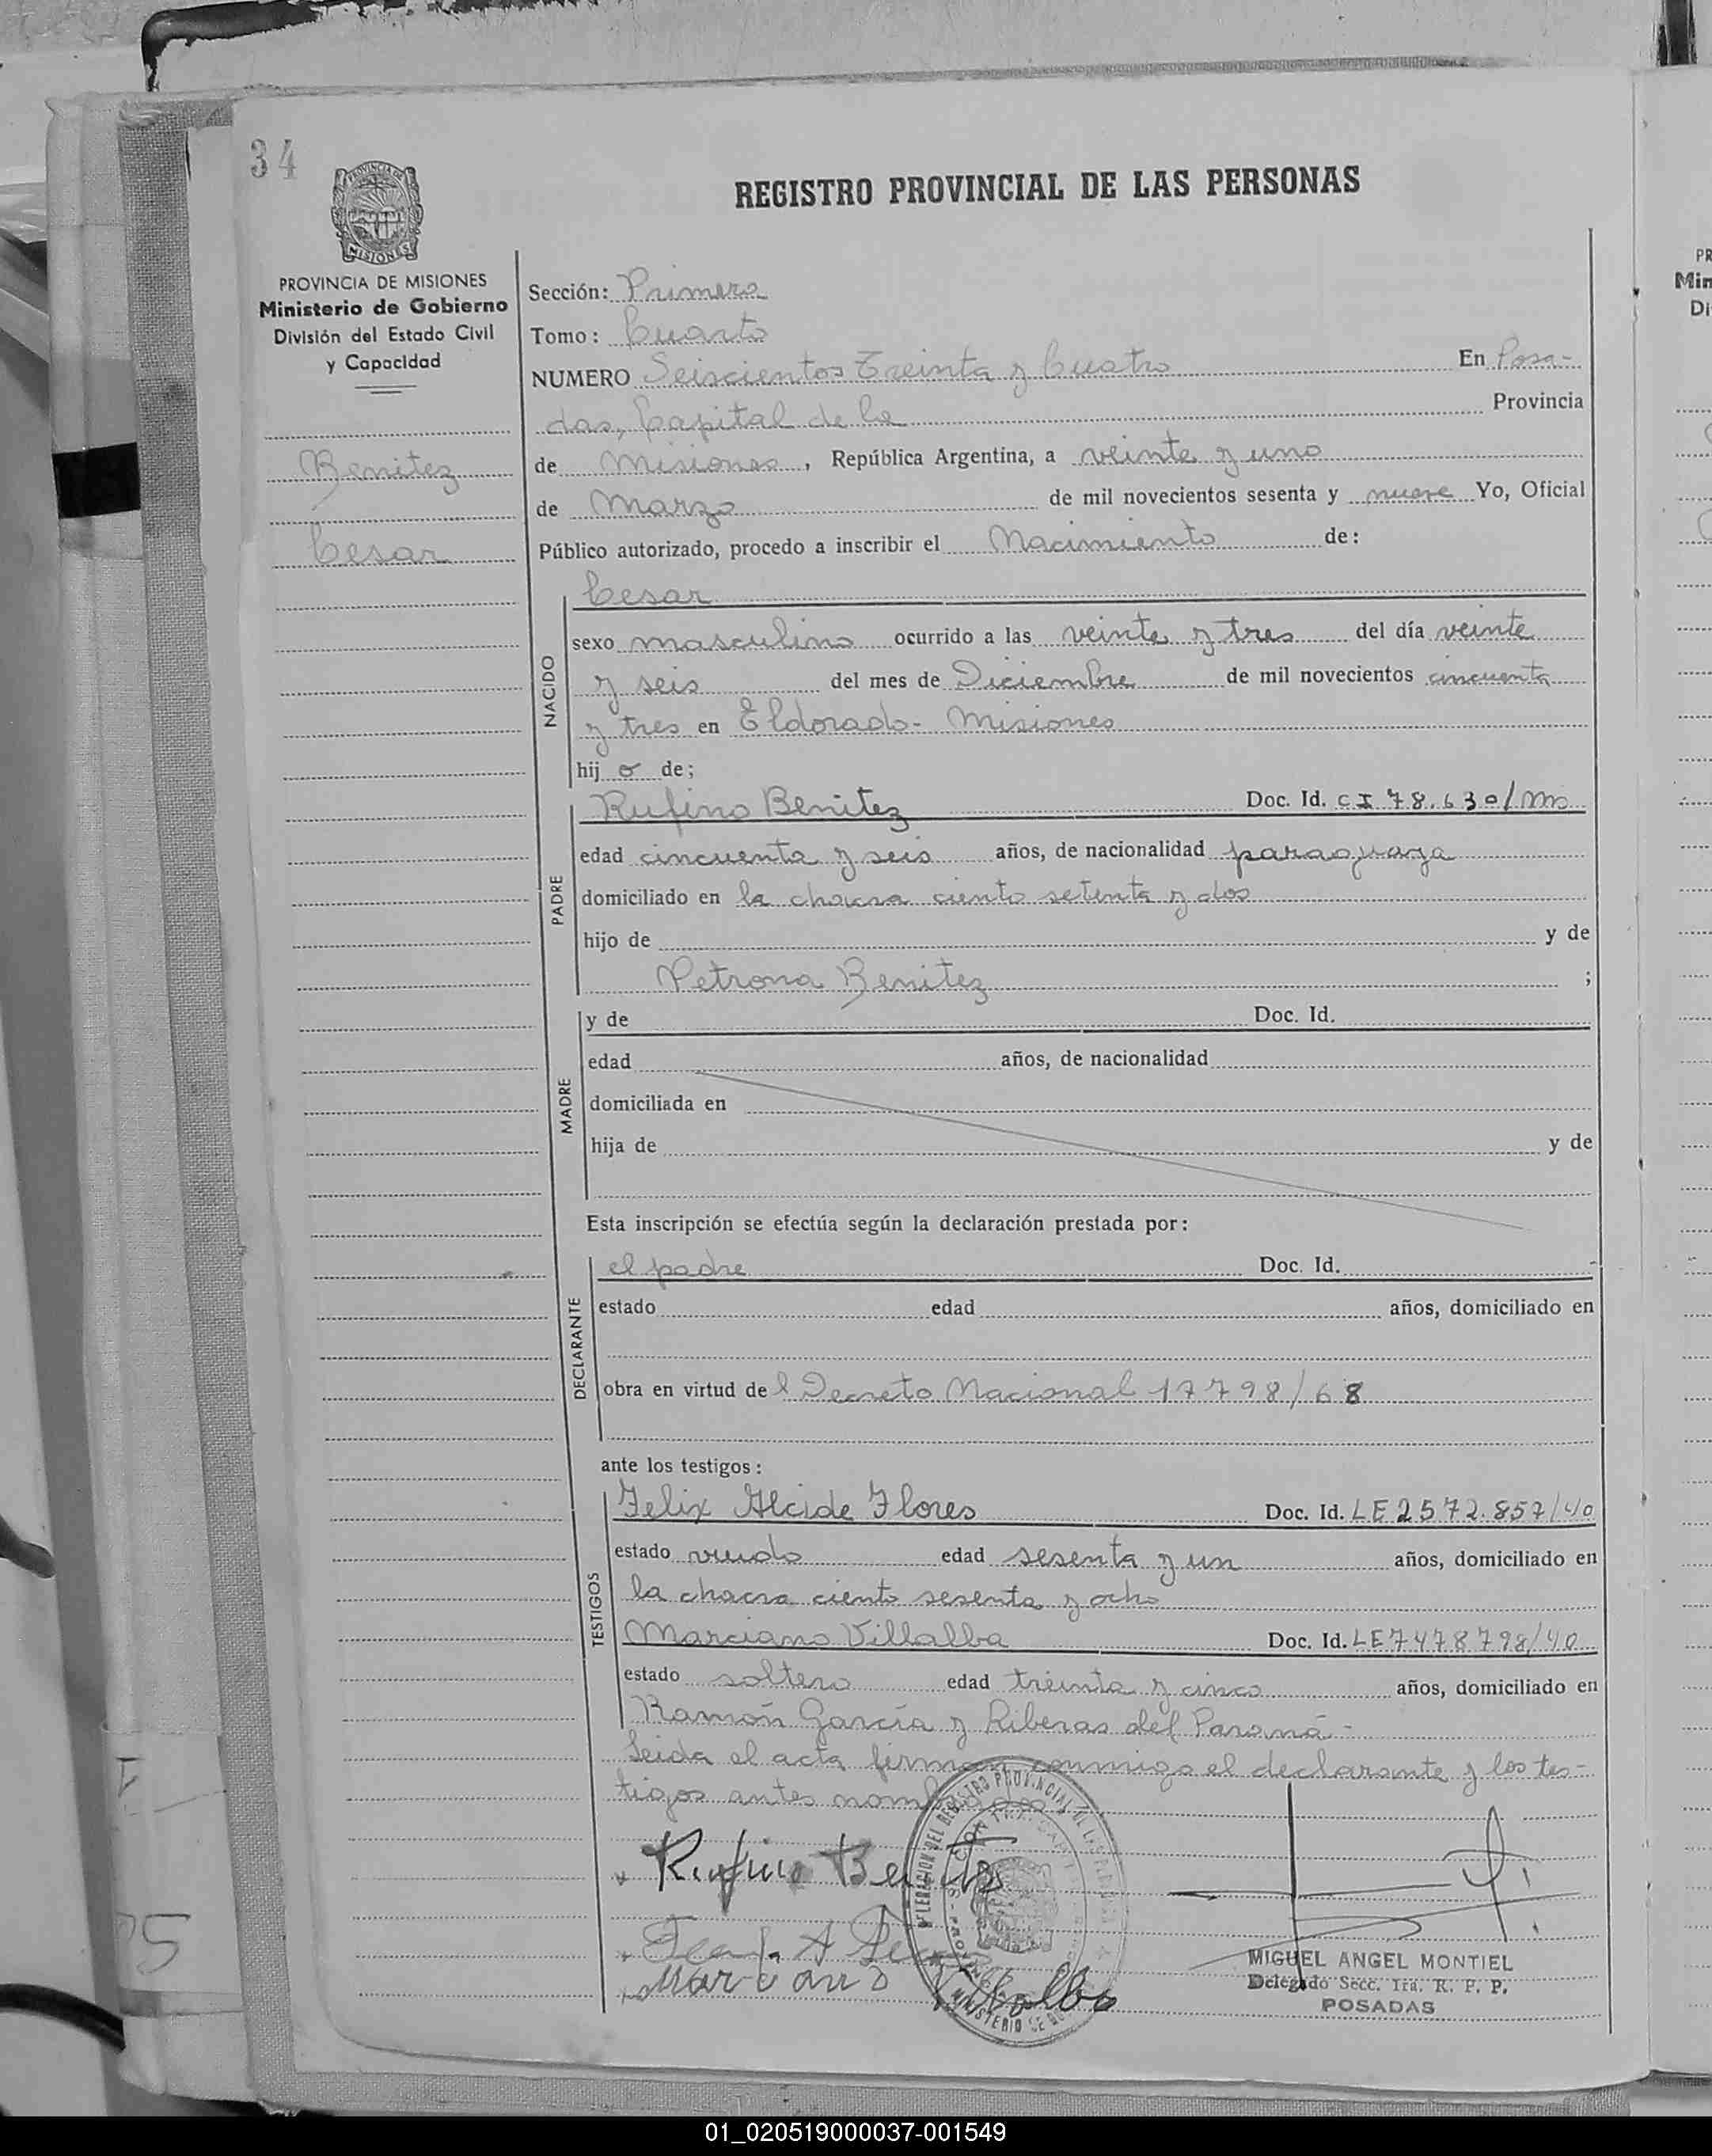 34
PROVINCIA DE
MISIONES
REGISTRO PROVINCIAL DE LAS PERSONAS
PROVINCIA DE MISIONES
Ministerio de Gobierno
División del Estado Civil
y Capacidad
Benitez
Cesar
Sección: Primera
Tomo: Cuarto
NUMERO Seiscientos Treinta y Cuatro En Posa-
das, Capital de la Provincia
de Misiones, República Argentina, a veinte y uno
de Marzo de mil novecientos sesenta y nueve Yo, Oficial
Público autorizado, procedo a inscribir el Nacimiento de:
NACIDO
Cesar
sexo masculino ocurrido a las veinte y tres del día veinte
y seis del mes de Diciembre de mil novecientos cincuenta
y tres en Eldorado - Misiones
hij o de;
PADRE
Rufino Benitez Doc. Id. CI 78.630/Ms
edad cincuenta y seis años, de nacionalidad paraguaya
domiciliado en la chacra ciento setenta y dos
hijo de y de
Petrona Benitez ;
MADRE
y de Doc. Id.
edad años, de nacionalidad
domiciliada en
hija de y de
Esta inscripción se efectúa según la declaración prestada por:
DECLARANTE
el padre Doc. Id.
estado edad años, domiciliado en
obra en virtud de l Decreto Nacional 17798/68
ante los testigos:
TESTIGOS
Felix Alcide Flores Doc. Id. LE 2572.857/40
estado viudo edad sesenta y un años, domiciliado en
la chacra ciento sesenta y ocho
Marciano Villalba Doc. Id. LE 7478798/40
estado soltero edad treinta y cinco años, domiciliado en
Ramón García y Riberas del Paraná -
Leida el acta firman conmigo el declarante y los tes-
tigos antes nombrados
Rufino Benitez
Marciano Villalba
MIGUEL ANGEL MONTIEL
Delegado Secc. 1ra. R. P. P.
POSADAS
PR
Min
Di
01_020519000037-001549